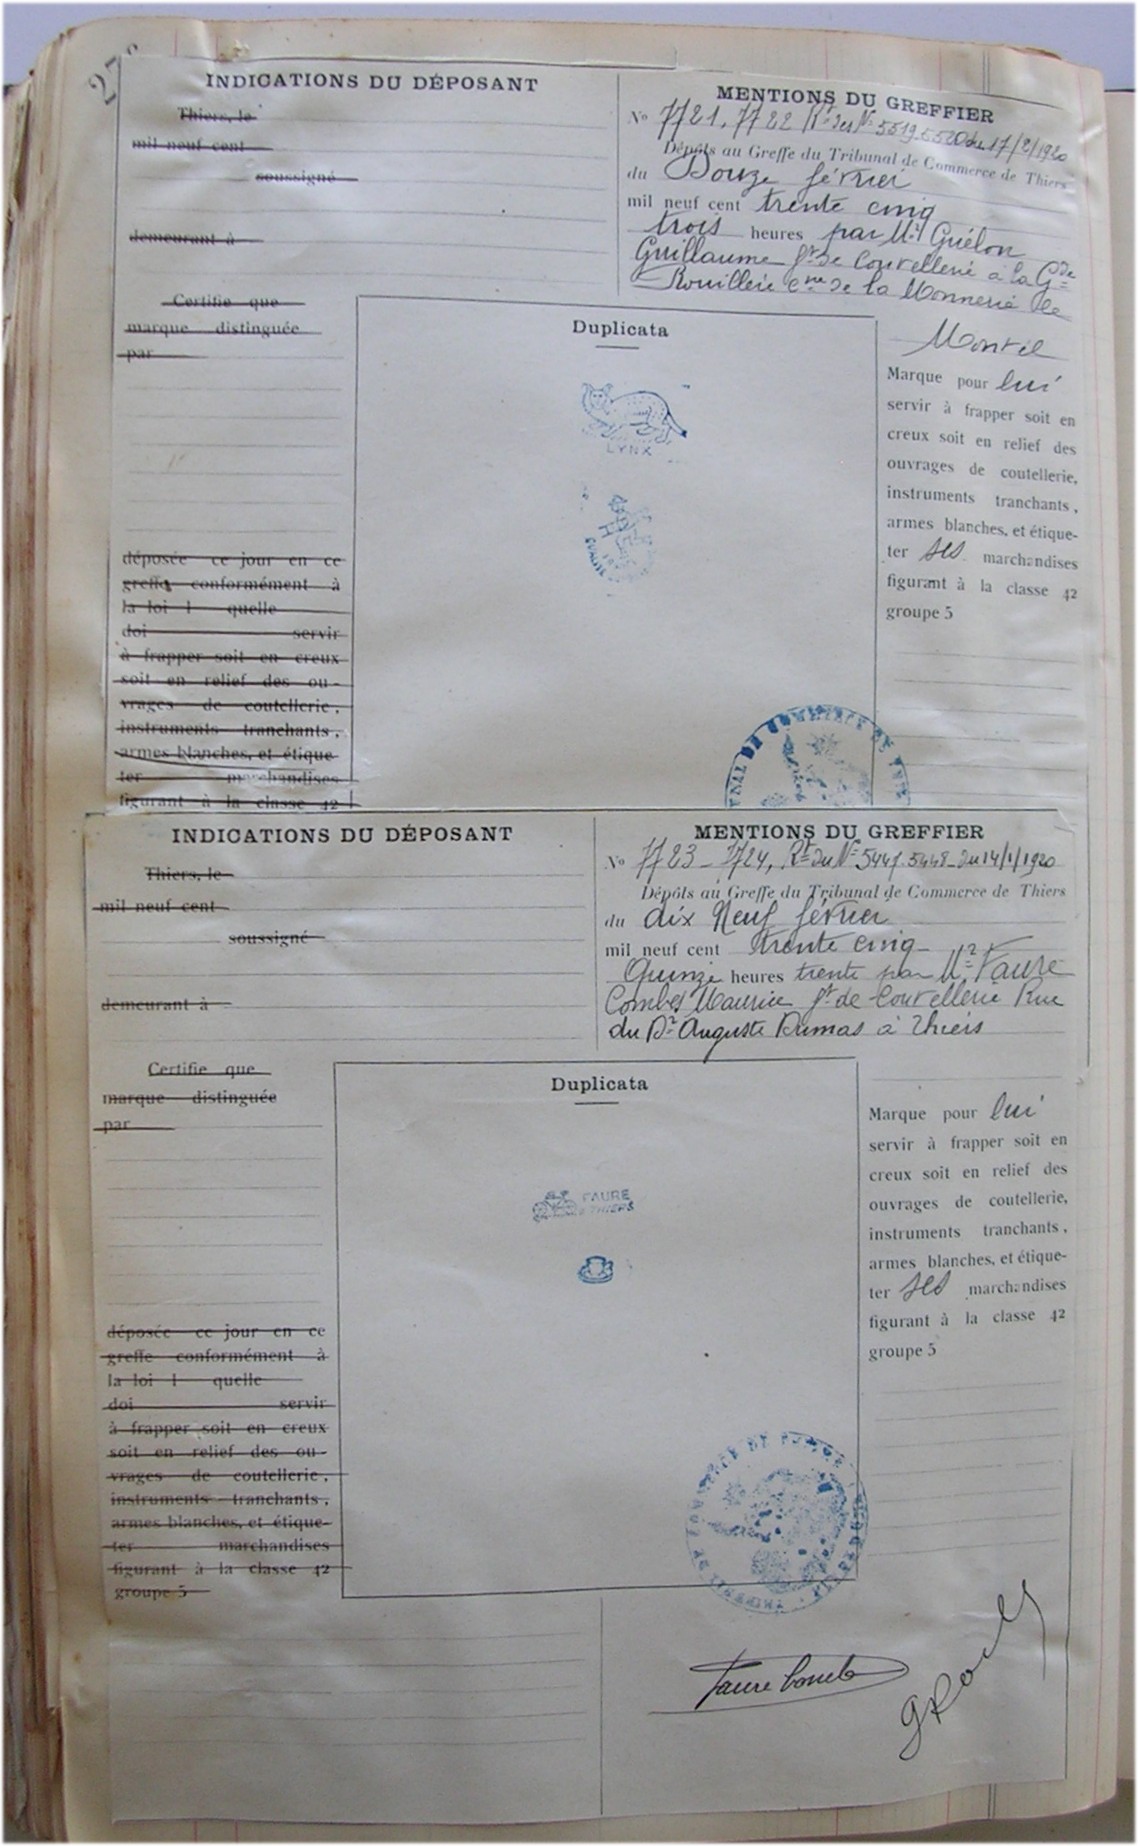 INDICATIONS DU DÉPOSANT
Thiers, le
mil neuf cent
soussigné
demeurant à
Certifie que
marque distinguée
par
déposée ce jour en ce
greffe conformément à
la loi l quelle
doi servir
à frapper soit en creux
soit en relief des ou-
vrages de coutellerie,
instruments tranchants,
armes blanches, et étique
ter marchandises
figurant à la classe 42
MENTIONS DU GREFFIER
No 7721, 7722 Rt des Nos 5519-5520 du 17/2/1920
Dépôts au Greffe du Tribunal de Commerce de Thiers
du Douze février
mil neuf cent trente cinq
trois heures par Mr Guélon
Guillaume ft de Coutellerie à la Gde
Rouillère cne de la Monnerie le
Montel
Duplicata
LYNX
QUALITÉ
Marque pour lui
servir à frapper soit en
creux soit en relief des
ouvrages de coutellerie,
instruments tranchants,
armes blanches, et étique-
ter ses marchandises
figurant à la classe 42
groupe 5
INDICATIONS DU DÉPOSANT
Thiers, le
mil neuf cent
soussigné
demeurant à
Certifie que
marque distinguée
par
déposée ce jour en ce
greffe conformément à
la loi l quelle
doi servir
à frapper soit en creux
soit en relief des ou-
vrages de coutellerie,
instruments tranchants,
armes blanches, et étique-
ter marchandises
figurant à la classe 42
groupe 5
MENTIONS DU GREFFIER
No 7723-7724, Rt du No 5447-5448 du 14/1/1920
Dépôts au Greffe du Tribunal de Commerce de Thiers
du dix Neuf février
mil neuf cent trente cinq
Quinze heures trente par Mr Faure
Combes Maurice ft de Coutellerie Rue
du Dr Auguste Dumas à Thiers
Duplicata
FAURE
A THIERS
Marque pour lui
servir à frapper soit en
creux soit en relief des
ouvrages de coutellerie,
instruments tranchants,
armes blanches, et étique-
ter ses marchandises
figurant à la classe 42
groupe 5
Faure Combes